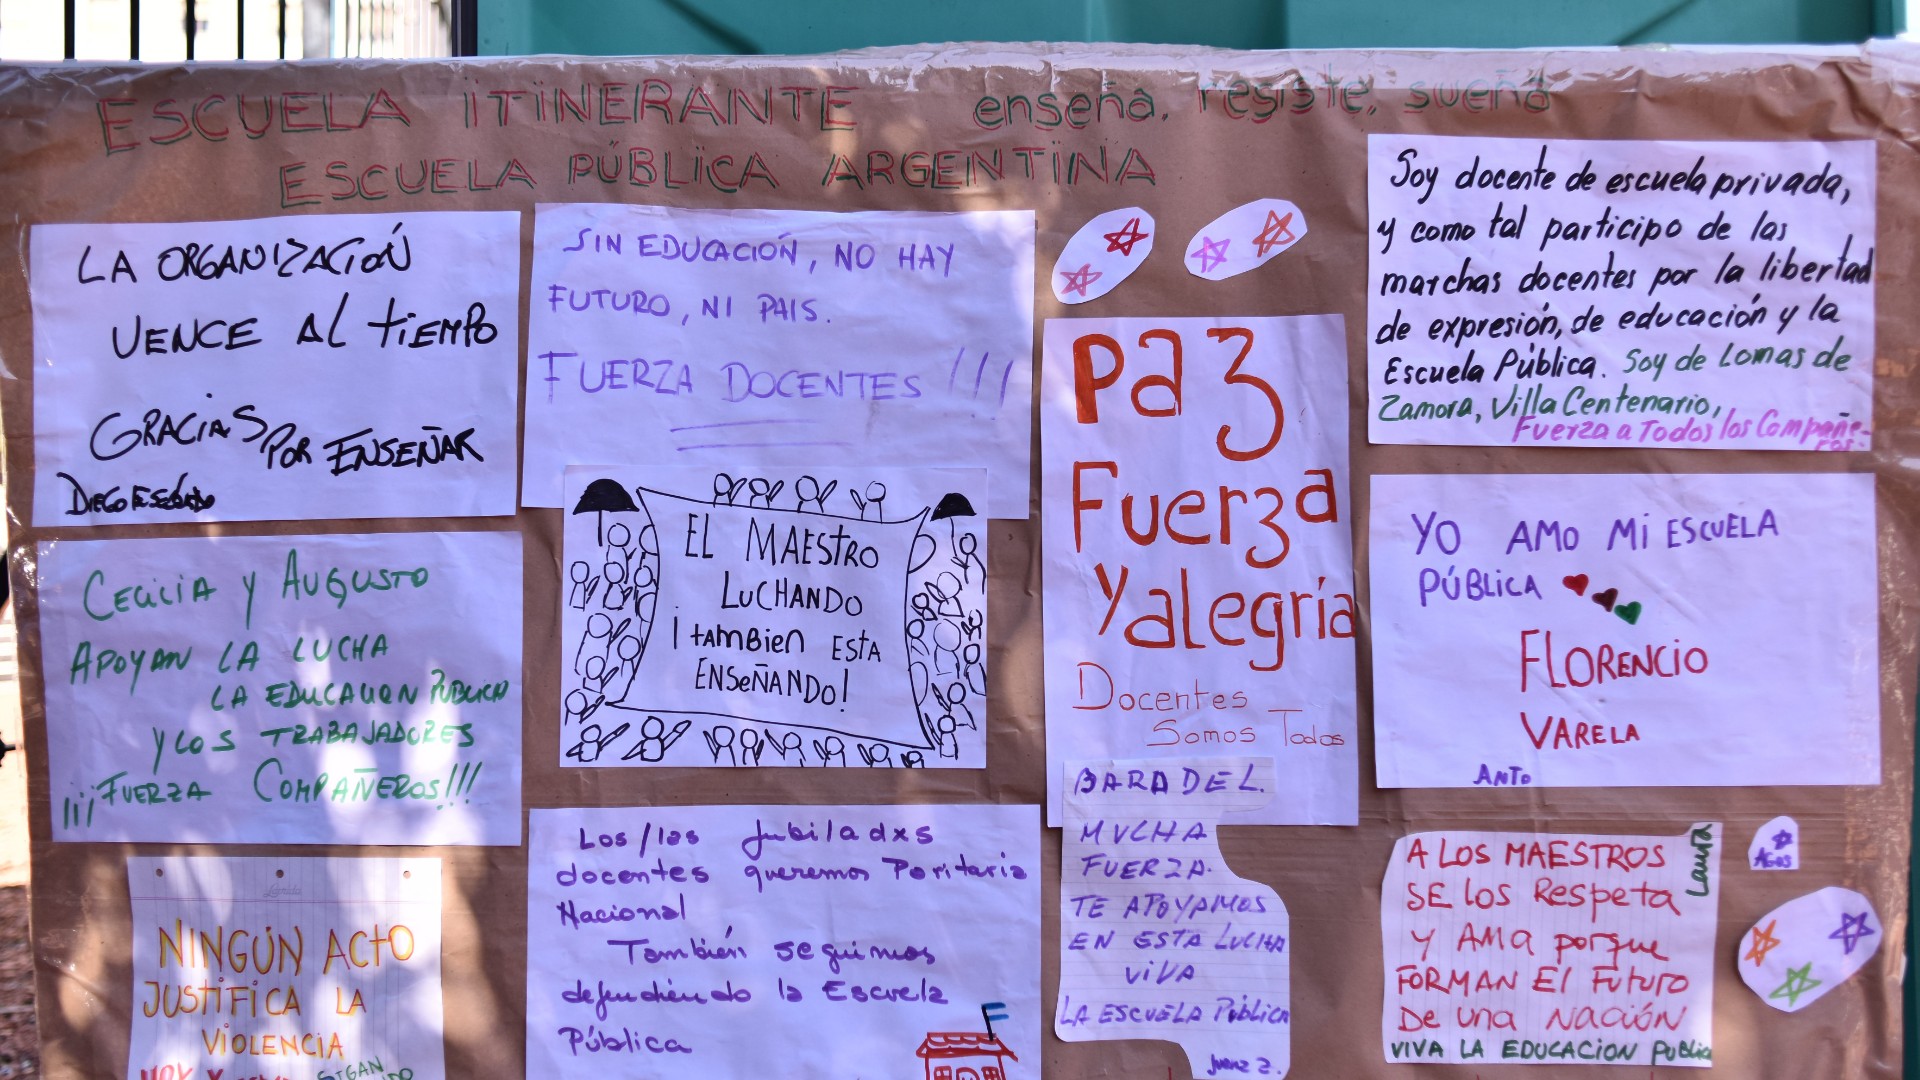 ESCUELA ITINERANTE enseña, resiste, sueña
ESCUELA PÚBLICA ARGENTINA
LA ORGANIZACIÓN
VENCE AL tiEMPO
GRACIAS POR ENSEÑAR
SIN EDUCACIÓN, NO HAY
FUTURO, NI PAIS.
FUERZA DOCENTES !!!
Soy docente de escuela privada,
y como tal participo de las
marchas docentes por la libertad
de expresión, de educación y la
Escuela Pública. Soy de Lomas de
Zamora, Villa Centenario,
Fuerza a Todos los Compañe-
ros.
Paz
Fuerza
y alegría
Docentes
Somos Todos
CECILIA Y AUGUSTO
APOYAN LA LUCHA
LA EDUCACION PUBLICA
Y LOS TRABAJADORES
¡¡¡FUERZA COMPAÑEROS!!!
EL MAEStRO
LUCHANDO
¡tAMBIEN EStA
ENSEÑANDO!
YO AMO Mi ESCUELA
PÚBLICA
FLORENCIO
VARELA
ANTO
Los/las jubiladxs
docentes queremos Paritaria
Nacional
También seguimos
defendiendo la Escuela
Pública
BARADEL.
MUCHA
FUERZA.
TE APOYAMOS
EN ESTA LUCHA
VIVA
LA ESCUELA Pública
A LOS MAESTROS
SE LOS Respeta
Y AMA porque
FORMAN El Futuro
De una NACIÓN
VIVA LA EDUCACION PUBLICA
Laura
AGOS
NINGÚN ACTO
JUSTIFICA LA
VIOLENCIA